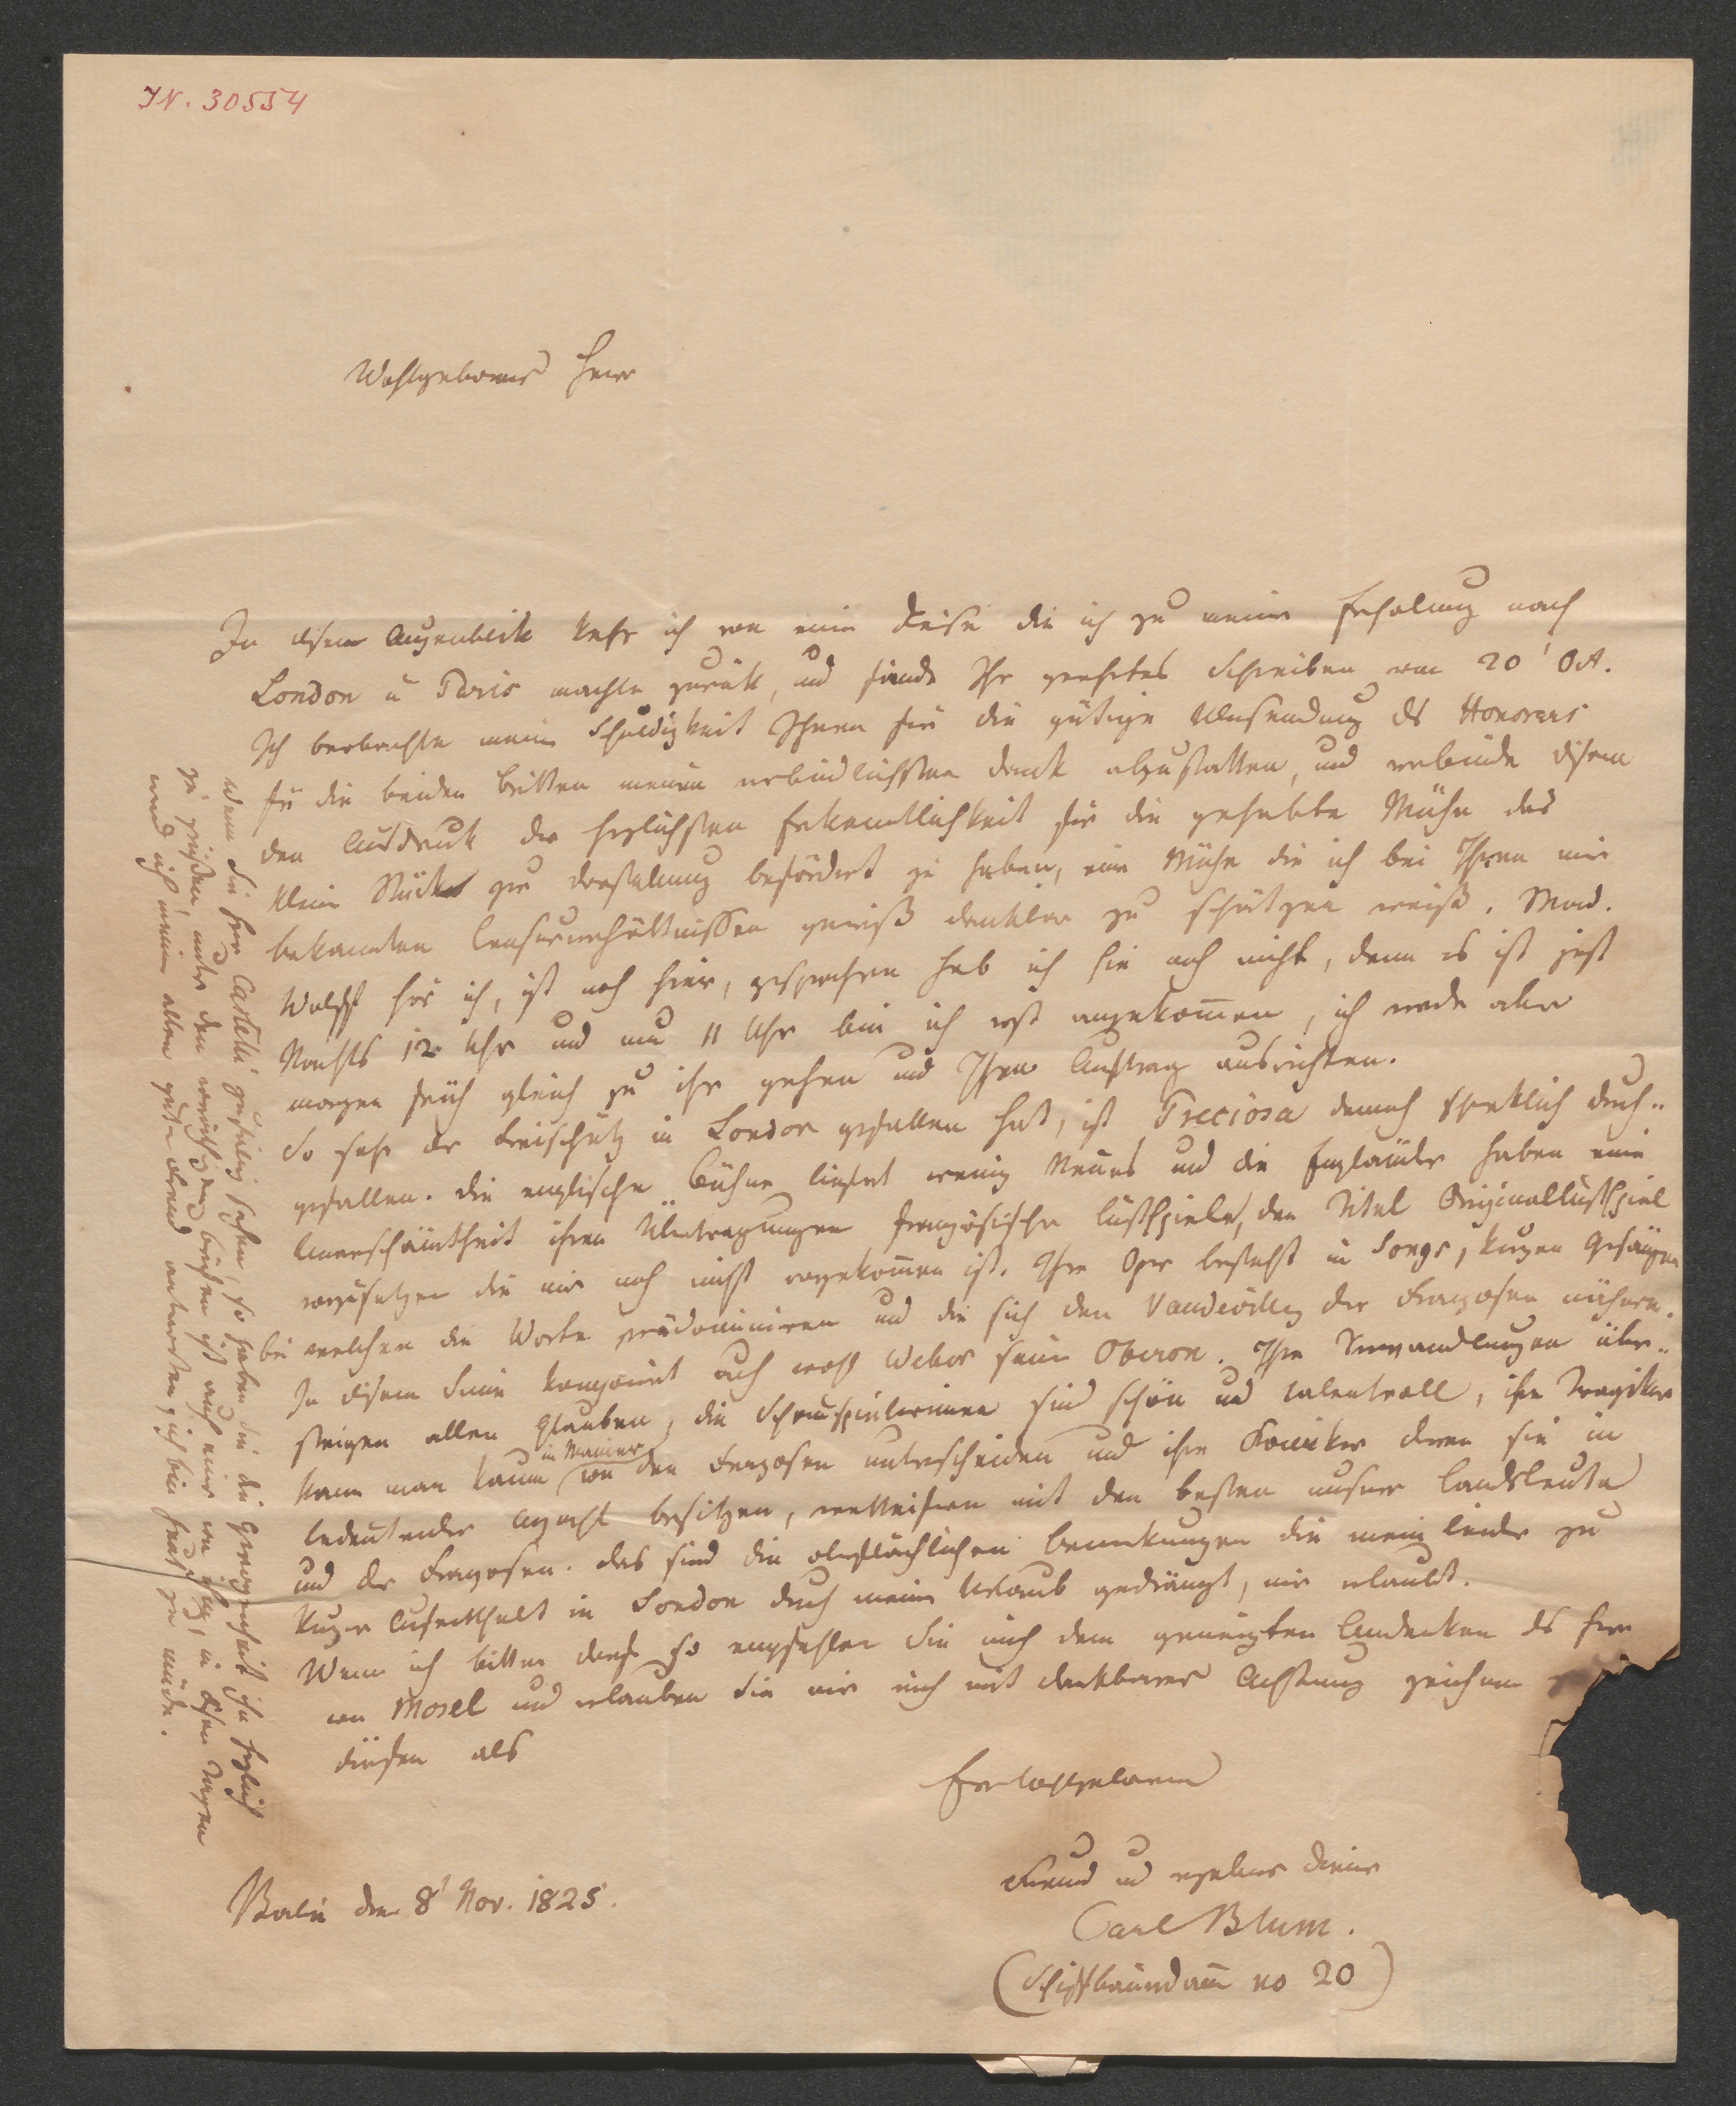 IN. 30554
Wohlgeborner Herr
In diesem Augenblick kehr ich von einer Reise die ich zu meiner Erholung nach
London u Paris machte zurük, und finde Ihr geehrtes Schreiben vom 20' Oct.
Ich beobachte meine Schuldigkeit Ihnen für die gütige Übersendung des Honorars
für die beiden Britten meinen verbindlichsten Dank abzustatten, und verbinde diesem
den Ausdruk der herzlichsten Erkenntlichkeit für die gehabte Mühe das
kleine Stück zur Darstellung befördert zu haben, eine Mühe die ich bei Ihren mir
bekannten Censurverhältnissen gewiß dankbar zu schätzen weiß. Mad.
Wolff hör ich, ist noch hier, gesprochen hab ich sie noch nicht, denn es ist jezt
Nachts 12 Uhr und um 11 Uhr bin ich erst angekommen, ich werde aber
morgen früh gleich zu ihr gehen und Ihren Auftrag ausrichten.
So sehr der Freischütz in London gefallen hat, ist Preciosa dennoch schreklich durch-
gefallen. Die englische Bühne liefert wenig Neues und die Engländer haben eine
Unverschämtheit ihren Übertragungen französischer Lustspiele, den Titel Originallustspiel
vorzusetzen die mir noch nicht vorgekommen ist. Ihre Oper besteht in Songs, kurzen Gesängen
bei welchen die Worte prädominiren und die sich den Vaudevilles der Franzosen nähern.
In diesem Sinne komponirt auch wohl Weber seinen Oberon. Ihre Verwandlungen über-
steigen allen Glauben, die Schauspielerinnen sind schön und talentvoll, ihre Tragiker
kann man kaum in Manier von den Franzosen unterscheiden und ihre Komiker deren sie in
bedeutender Anzahl besitzen, wetteifern mit den besten unsrer Landsleute
und der Franzosen. Das sind die oberflächlichen Bemerkungen die mein leider zu
kurzer Aufenthalt in London durch meinen Urlaub gedrängt, mir erlaubt.
Wenn ich bitten darf so empfehlen Sie mich dem geneigten Andenken des Herrn
von Mosel und erlauben Sie mir mich mit dankbarer Achtung zeichnen
dürfen als
Euer Wohlgeboren
Freund und ergebner Diener
Carl Blum.
(Schiffbauerdamm no 20)
Berlin den 8' Nov. 1825.
Wenn Sie Herr Castelli zufällig sehen, so haben Sie die Gewogenheit ihn herzlich
zu grüßen, unter den Briefen ist auch einer von ihm, in diesen Tagen
werd ich meinem alten guten Freund antworten, ich bin heut zu müde.